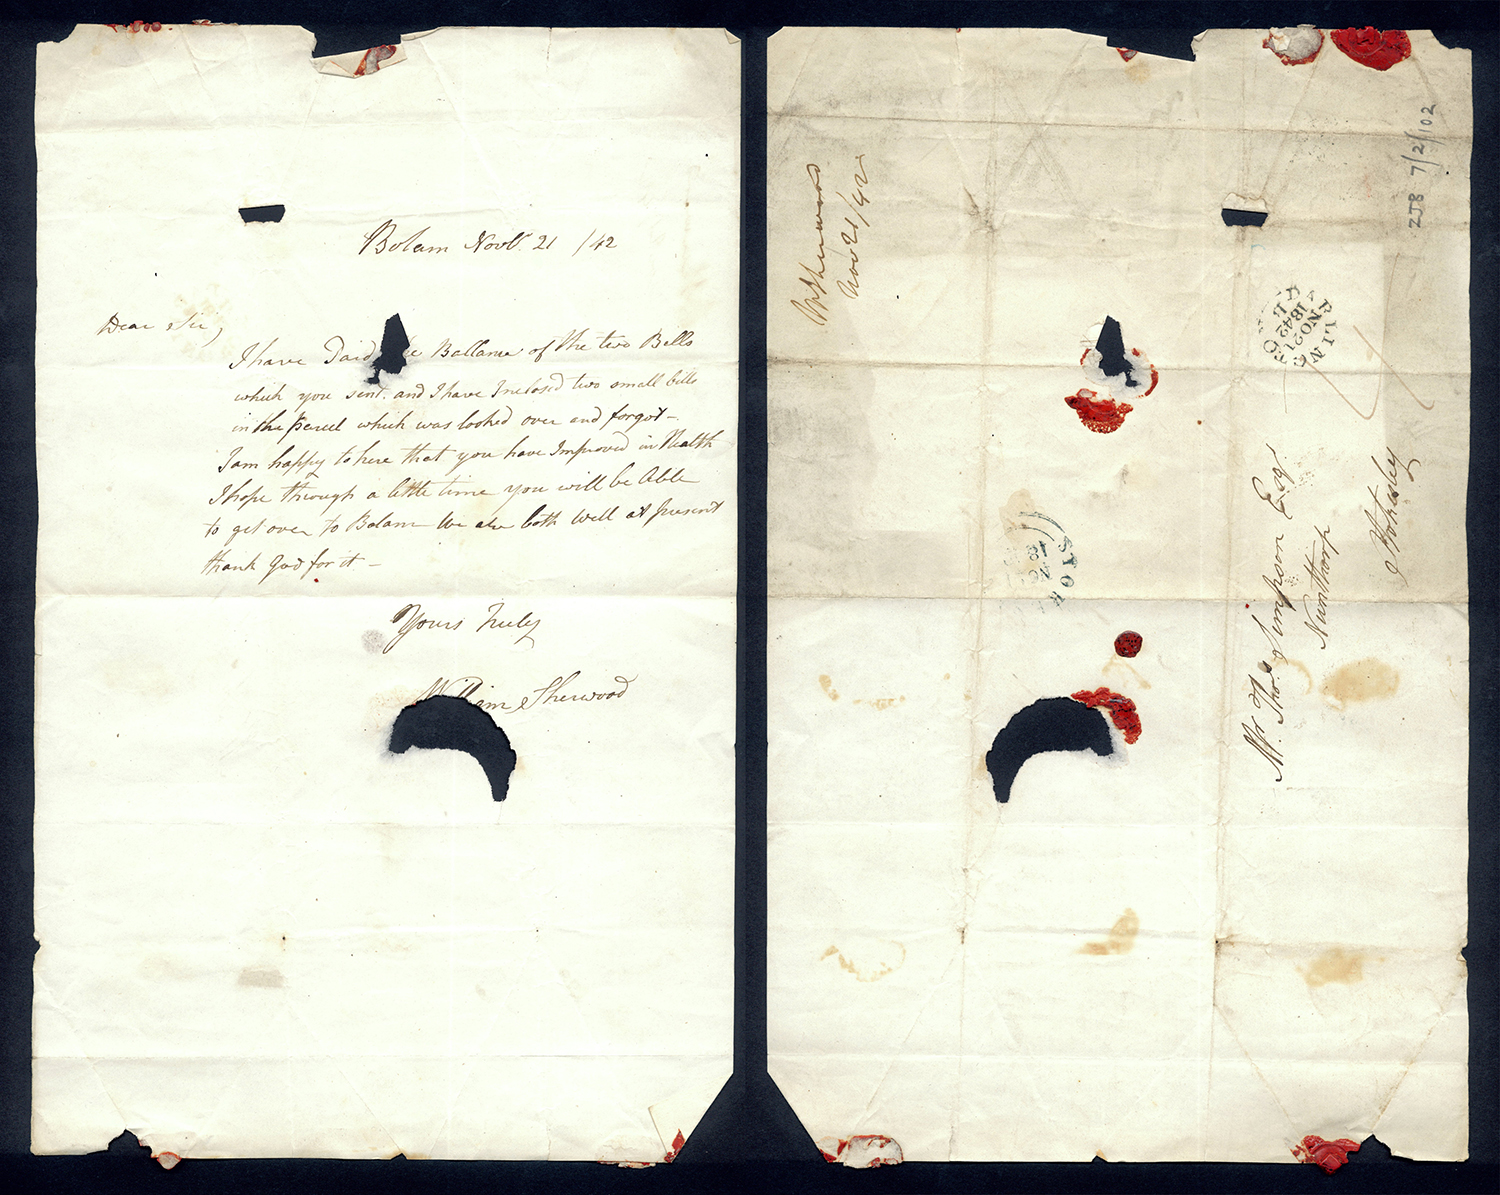 Bolam Novbr. 21 /42
Dear Sir,
I have Paid the Ballance of the two Bills
which you sent. and I have Inclosed two small bills
in the parcel which was looked over and forgot –
I am happy to here that you have Improved in Health
I hope through a little time you will be Able
to get over to Bolam We are both well at present
thank God for it –
Yours truly
William Sherwood
Wm Sherwood
Nov 21/42
ZJB 7/2/102
DARLINGTON
NO 21
1842
STOK
Mr. Thos. Simpson Esqr.
Nunthorp
Stokesley